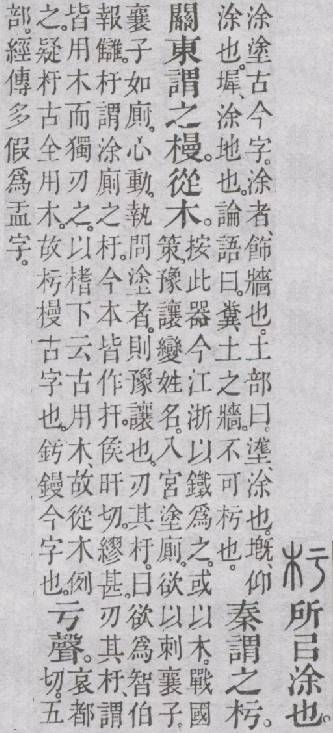 杇所㠯涂也。
涂塗古今字。涂者、飾牆也。土部曰。、涂也。墍、仰
涂也。墀、涂地也。論語曰。糞土之牆。不可杇也。
秦謂之杇。
關東謂之槾。從木。
按此器今江浙以鐵爲之。或以木。戰國
策。豫讓變姓名。入宮塗廁。欲以刺襄子。
襄子如廁。心動。執問塗者。則豫讓也。刃其杅。曰欲爲智伯
報讎。杅謂涂廁之杅。今本皆作扞。矦旰切。繆甚。刃其杅、謂
皆用木而獨刃之。以榰下云古用木故從木例
之。疑杅古全用木。故杇槾古字也。釫鏝今字也。
亏聲。
哀都
切。五
部。經傳多假爲盂字。